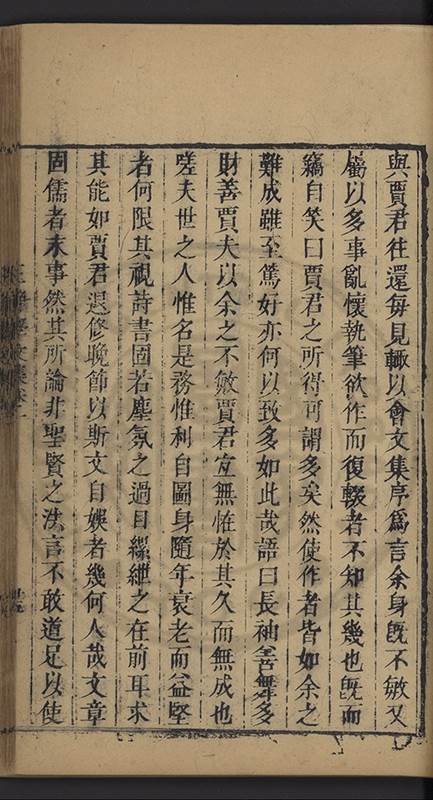 與賈君往還每見輙以會文集序爲言余身既不敏又
屬以多事亂懷執筆欲作而復輟者不知其幾也既而
竊自笑曰賈君之所得可謂多矣然使作者皆如余之
難成雖至篤好亦何以致多如此哉語曰長袖善舞多
財善賈夫以余之不敏賈君宜無恠於其久而無成也
嗟夫世之人惟名是務惟利自圖身隨年衰老而益堅
者何限其視詩書固若塵氛之過目縲紲之在前耳求
其能如賈君退修晚節以斯文自娛者幾何人哉文章
固儒者末事然其所論非聖賢之法言不敢道足以使